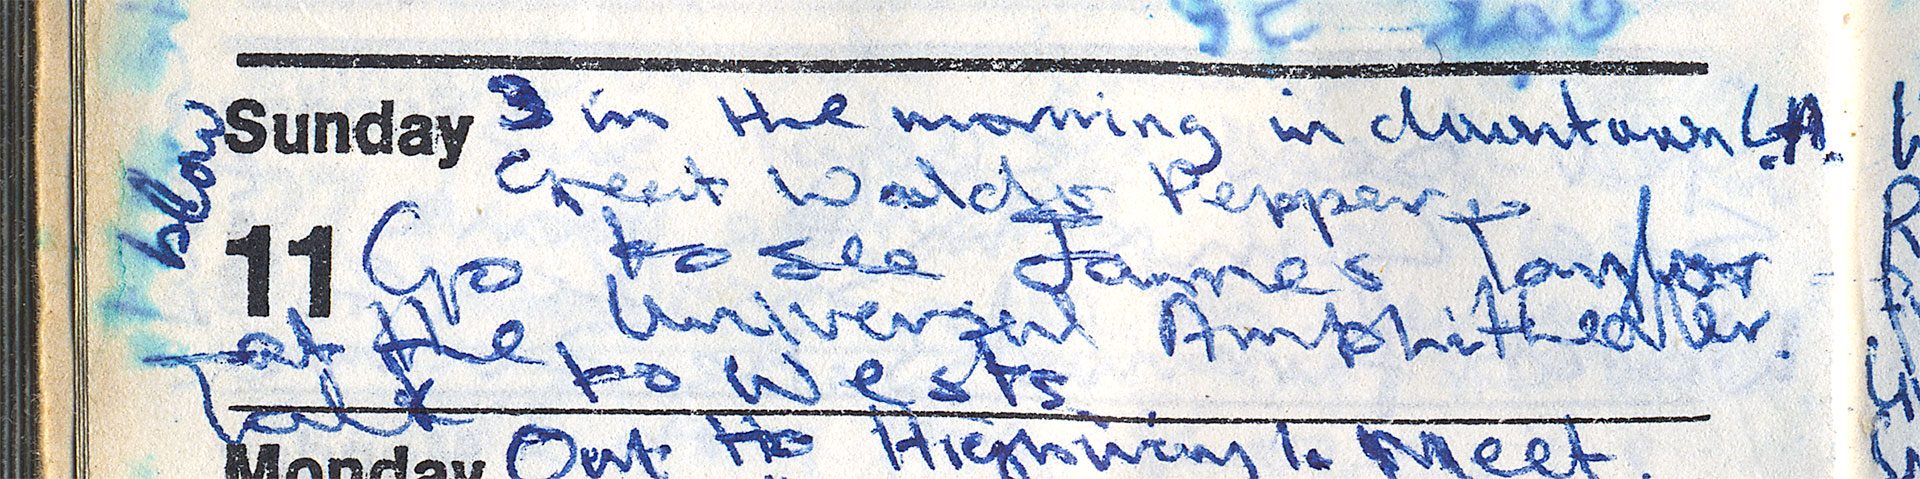 Sunday 3 in the morning in downtown L.A.
Great Waldo Pepper
11 Go to see James Taylor
at the Universal Amphitheater.
Talk to Wests
Monday Out to Highway 1. Meet
blow